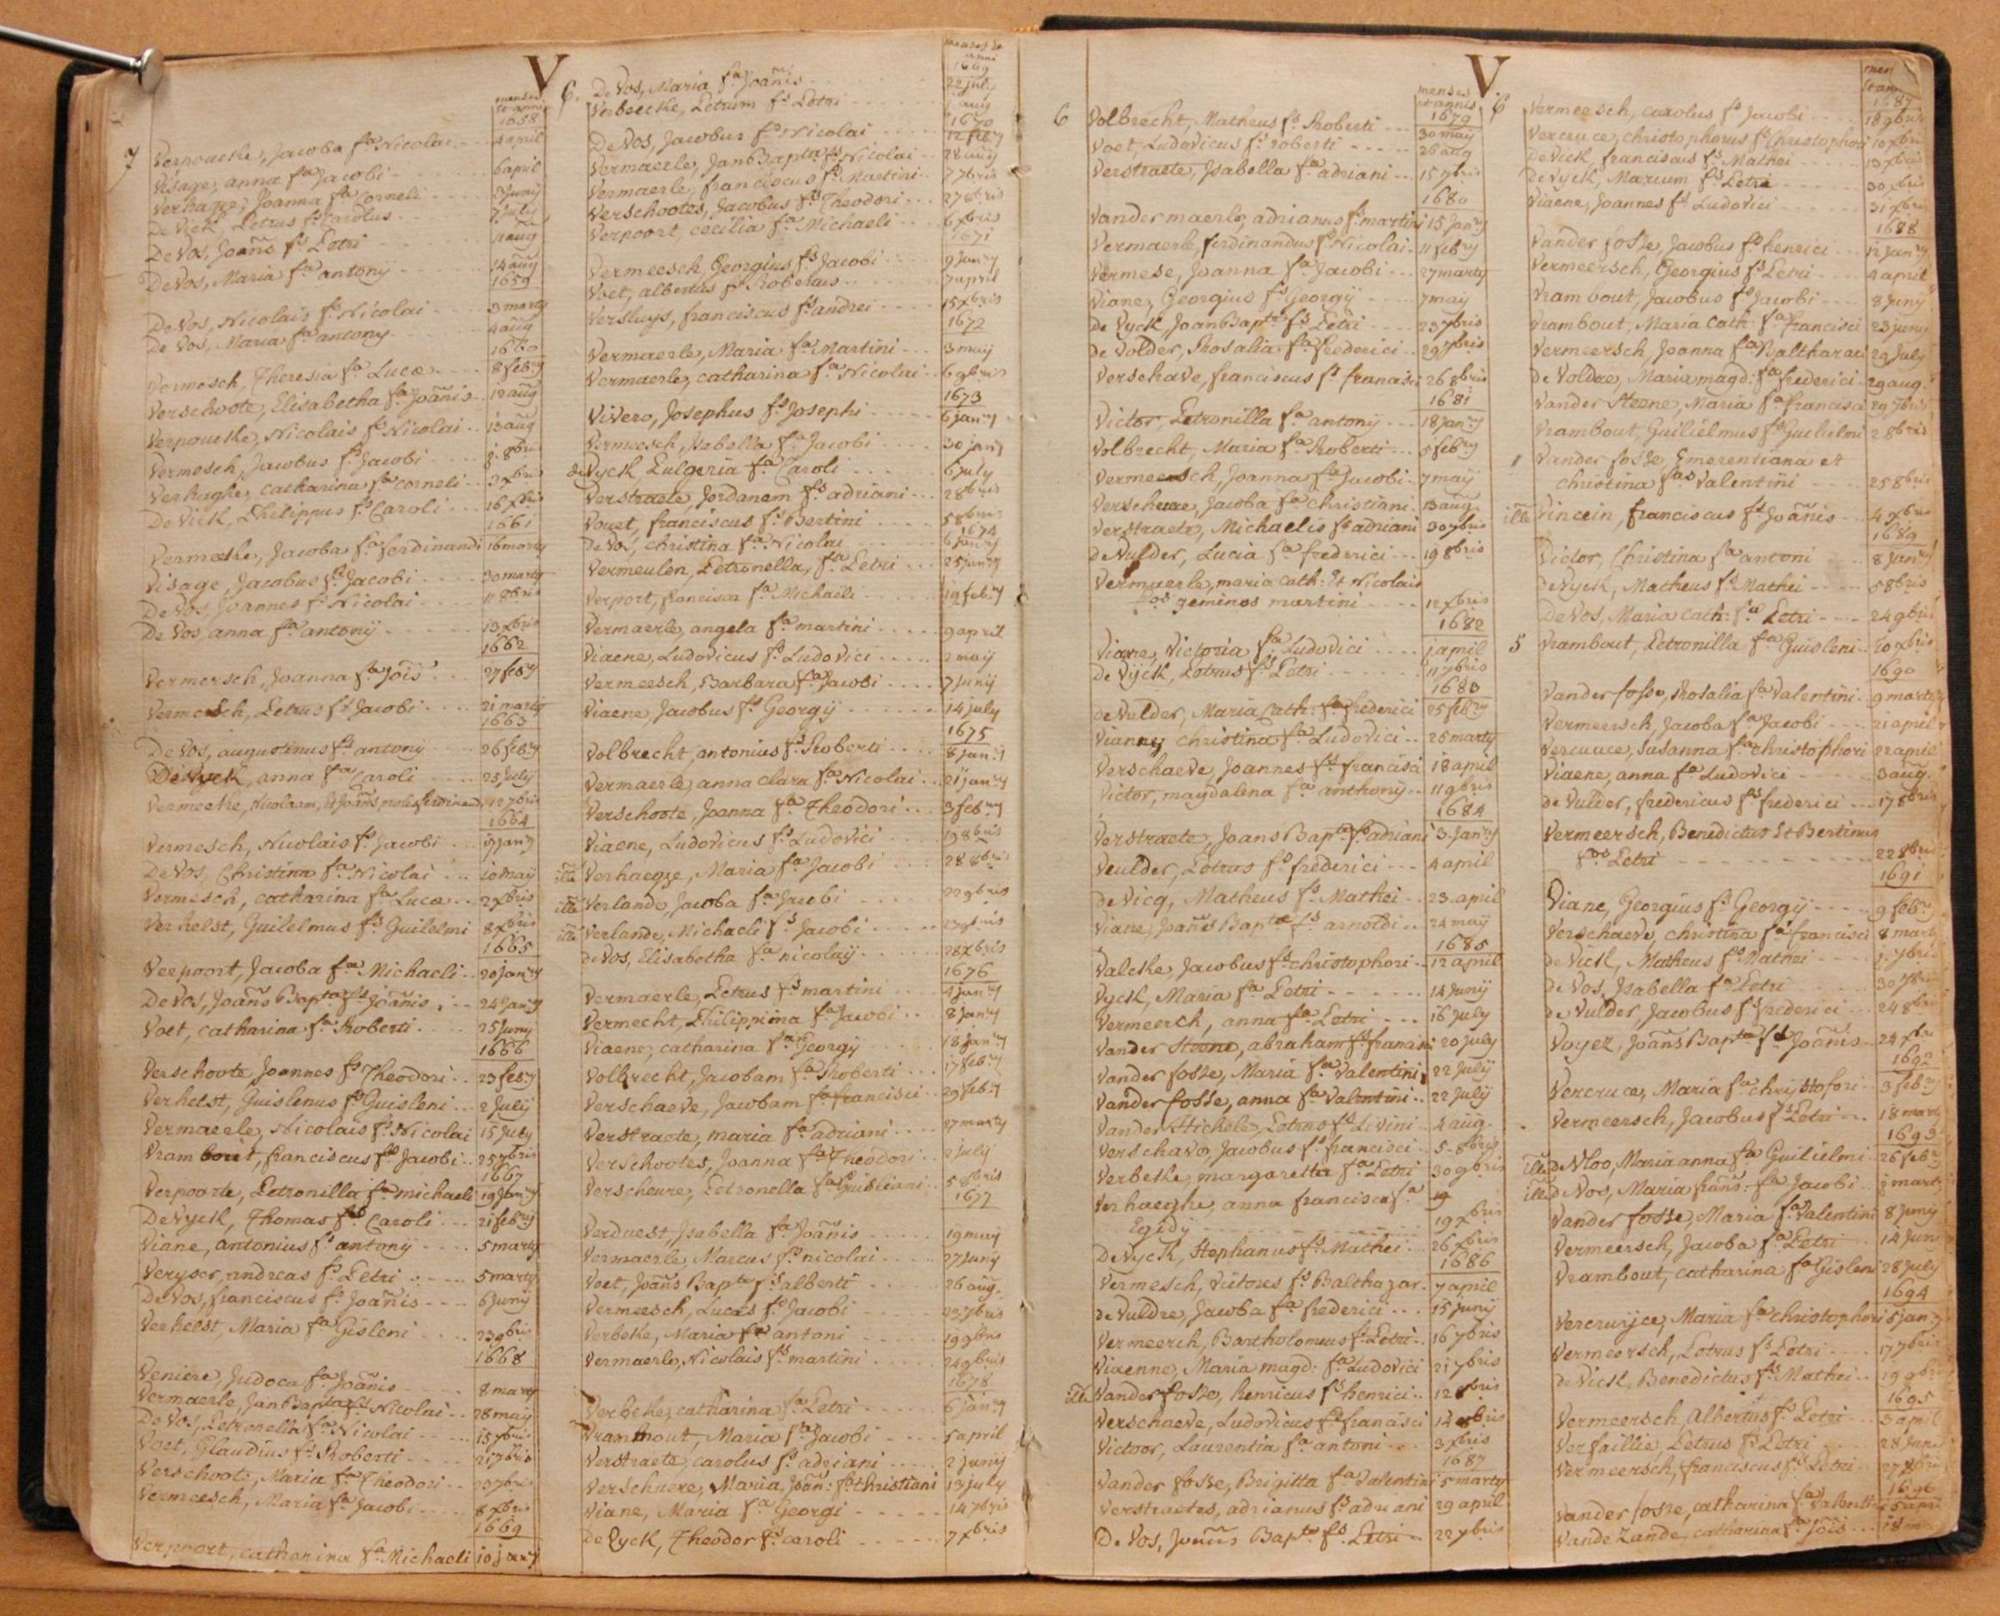 V
menses et anni
1658
7
Verpoucke, Jacoba fa Nicolai 4 april
Visage, anna fa Jacobi 6 april
Verhagge, Joanna fa Corneli 3 Junij
De Vick, Petrus fs Carolus 7 July
De Vos, Joañis fs Petri 11 aug
De Vos, Maria fa antony 14 aug
1659
De Vos, Nicolais fs Nicolai 3 marty
De Vos, Maria fa antony 4 aug
1660
Vermesch, Theresia fa Lucæ 8 feb:y
Verschoote, Elisabetha fa Joañis 12 aug
Verpoucke, Nicolais fs Nicolai 13 aug
Vermesch, Jacobus fs Jacobi 8bris
Verhaghe, catharina fa corneli 3 xbris
De Vick, Philippus fs Caroli 16 xbris
1661
Vermeeke, Jacoba fa ferdinandi 16 marty
Visage, Jacobus fs Jacobi 30 marty
De Vos, Joannes fs Nicolai 11 8bris
De Vos, anna fa antonij 13 xbris
1662
Vermersch, Joanna fa Jois 27 feb:y
Vermesch, Petrus fs Jacobi 21 marty
1663
De Vos, augustinus fs antony 26 feb:y
De Vyck, anna fa Caroli 25 July
Vermeeke, 7bris
1664
Vermesch, Nicolais fs Jacobi Jan:y
De Vos, Christina fa Nicolai 10 may
Vermesch, catharina fa Lucæ 2 xbris
Verhelst, Guilelmus fs Guilelmi 8 xbris
1665
Verpoort, Jacoba fa Michaeli 20 Jan:y
De Vos, Joañs Bapta fs Joañis 24 Jan:y
Voet, catharina fa Roberti 25 Juny
1666
Verschoote, Joannes fs Theodori 23 feb:y
Verhelst, Guislenus fs Guisleni 2 July
Vermaerle, Nicolais fs Nicolai 15 July
Vrambout, franciscus fs Jacobi 25 7bris
1667
Verpoorte, Petronilla fa michaeli 19 Jan:y
De Vyck, Thomas fs Caroli 21 feb:y
Viane, antonius fs antonij 5 marty
Veryser, andreas fs Petri 5 marty
De Vos, franciscus fs Joañis 6 Junij
Verhelst, Maria fa Gisleni 23 9bris
1668
Veniere, Judoca fa Joañis 8 marty
Vermaerle, Jan Bapta fs Nicolai 28 maij
De Vos, Petronella fa Nicolai 15 7bris
Voet, Glaudius fs Roberti 21 7bris
Verschoote, Maria fa Theodori 23 7bris
Vermeesch, Maria fa Jacobi 8 xbris
1669
Verpoort, catharina fa Michaeli 10 Jan:y
6.
menses et anni
1669
De Vos, Maria fa Joañis 22 July
Verbeecke, Petrum fs Petri aug
1670
De Vos, Jacobus fs Nicolai 12 feb:y
Vermaerle, Jan Bapta fs Nicolai 28 aug
Vermaerle, franciscus fs Martini 7 7bris
Verschootes, Jacobus fs Theodori 27 8bris
Verpoort, cecilia fa Michaeli 6 xbris
1671
Vermeesch, Georgius fs Jacobi 9 Jan:y
Voet, albertus fs Robertus 7 april
Versluys, franciscus fs andrei 15 xbris
1672
Vermaerle, Maria fa Martini 3 maij
Vermaerle, catharina fa Nicolai 6 9bris
1673
Vivero, Josephus fs Josephi 6 Jan:y
Vermeesch, Isabella fa Jacobi 30 Jan:y
de Vyck Pulgeria fa Caroli 6 July
Verstraete, Jordanem fs adriani 28bris
Vouet, franciscus fs Bertini 5 8bris
1674
De Vos, christina fa Nicolai 6 Jan:y
Vermeulen, Petronella, fa Petri 25 Jan:y
Verport, francisca fa Michaeli 19 feb:y
Vermaerle, angela fa martini 9 april
Viaene, Ludovicus fs Ludovici 2 maij
Vermeesch, Barbara fa Jacobi 7 Junij
Viaene, Jacobus fs Georgÿ 14 july
1675
Volbrecht, antonius fs Roberti 8 Jan:y
Vermaerle, anna clara fa Nicolai 21 jan:y
Verschoote, Joanna fa Theodori 3 feb:y
Viaene, Ludovicus fs Ludovici 19 8bris
illa Verhaegge, Maria fa Jacobi 28 8bris
illa Verlande, Jacoba fa Jacobi 22 9bris
ille Verlande, Michaeli fs Jacobi 23 9bris
de Vos, Elisabetha fa nicolaij 28 xbris
1676
Vermaerle, Petrus fs martini 4 Jan:y
Vermecht, Philippina fa Jacobi 8 Jan:y
Viaene, catharina fa Georgÿ 18 jan:y
Volbrecht, Jacobam fa Roberti 17 feb:y
Verschaeve, Jacobam fa francisci 29 feb:y
Verstraete, maria fa adriani 27 marty
Verschootes, Joanna fa Theodori 2 july
Verscheure, Petronella fa Guisliani 5 8bris
1677
Verduest, Isabella fa Joañis 19 maij
Vermaerle, Marcus fs nicolai 27 Junij
Voet, Joañs Bapta fs alberti 26 aug
Vermeesch, Lucas fs Jacobi 23 7bris
Verbeke, Maria fa antoni 19 9bris
Vermaerle, Nicolais fs martini 24 9bris
1678
Verbeke, catharina fa Petri 6 jan:y
Vrambout, Maria fa Jacobi 5 april
Verstraete, carolus fs adriani 2 junij
Verschuere, Maria Joañ: fa christiani 13 july
Viane, Maria fa Georgi 14 7bris
de Vyck, Theodor fs caroli 7 xbris
V
6
menses et annis
1679
Volbrecht, Matheus fs Roberti 30 maij
Voet, Ludovicus fs roberti 26 aug
Verstraete, Isabella fa adriani 15 7bris
1680
Vandermaerle, adrianus fs martini 15 Jan:y
Vermaerle, ferdinandus fs Nicolai 11 feb:y
Vermese, Joanna fa Jacobi 27 marty
Viane, Georgius fs Georgÿ 7 maij
de Vyck, Joan Bapta fs Petri 23 7bris
de Volder, Rosalia fa frederici 29 7bris
Verschave, franciscus fs francisci 26 8bris
1681
Victor, Petronilla fa antonij 18 jan:y
Volbrecht, Maria fa Roberti 5 feb:y
Vermeersch, Joanna fa Jacobi 7 maij
Verscheure, Jacoba fa christiani 13 aug
Verstraete, Michaelis fs adriani 30 7bris
de Vulder, Lucia fa frederici 19 8bris
Vermaerle, maria cath: Et Nicolais
fos geminos martini 12 xbris
1682
Viane, Victoria fa Ludovici 1 april
de Vijck, Petrus fs Petri 11 7bris
1683
de Vulder, Maria Cath: fa frederici 25 feb:y
Vianne, christina fa Ludovici 26 marty
Verschaeve, Joannes fs francisci 18 april
Victor, magdalena fa anthony 11 9bris
1684
Verstraete, Joans Bapta fs adriani 3 Jan:y
Veulder, Petrus fs frederici 4 april
de Vicq, Matheus fs Mathei 23 april
Viane, Joañs Baptæ fs arnoldi 24 maij
1685
Valcke Jacobus fs christophori 12 april
Vyck, Maria fa Petri 14 Junij
Vermeerch, anna fa Petri 16 July
Vander Steene, abraham fs francisci 20 july
Vander fosse, Maria fa Valentini 22 july
Vander fosse, anna fa Valentini 22 july
Vander Hichele, Petrus fs Livini 4 aug
Verschave, Jacobus fs francisci 5-8bris
Verbeke, margaretta fa Petri 30 9bris
Verhaeghe, anna francisca fa
Egidÿ 19 xbris
De Vyck, Stephanus fs Mathei 26 xbris
1686
Vermesch, Victores fs Balthazar 7 april
de Vuldre, Jacoba fa frederici 15 junij
Vermeerch, Bartholomeus fs Petri 16 7bris
Viaenne, Maria magd: fa Ludovici 21 7bris
ille Vander fosse, henricus fs henrici 12 8bris
Verschaeve, Ludovicus fs francisci 14 xbris
Victoor, Laurentia fa antoni 3 xbris
1687
Vander fosse, Brigitta fa Valentini 5 marty
Verstraetes, adrianus fs adriani 29 april
De Vos, Joañs Bapta fs Petri 22 7bris
6
1687
Vermeesch, carolus fs Jacobi 18 9bris
Vercruce, christophorus fs christophori 10 xbris
De Vick, franciscus fs Mathei 13 xbris
De Vyck, Marium fs Petri 30 xbris
Viaene, Joannes fs Ludovici 31 xbris
1688
Vander fosse, Jacobus fs henrici 12 jan:y
Vermeersch, Georgius fs Petri 4 april
Vrambout, Jacobus fs Jacobi 8 Juny
Vrambout, Maria Cath: fa francisci 23 juny
Vermeersch, Joanna fa Balthazari 29 july
de Voldre, Maria magd: fa frederici 29 aug
Vander Steene, Maria fa francisci 29 7bris
Vrambout, Guilielmus fs Guilielmi 2 8bris
Vander fosse, Emerentiana et
christina fas Valentini 25 8bris
ille Vincein, franciscus fs Joañis 4 xbris
1689
Victor, Christina fa antoni 8 jan:y
De Vyck, Matheus fs Mathei 5 8bris
De Vos, Maria cath: fa Petri 24 9bris
5 Vrambout, Petronilla fa Guisleni 20 xbris
1690
Vander fosse, Rosalia fa Valentini 9 marty
Vermeersch, Jacoba fa Jacobi 21 april
Vercruce, Susanna fa christophori 22 april
Viaene, anna fa Ludovici 3 aug
de Vulder, fredericus fs frederici 17 8bris
Vermeersch, Benedictus Et Bertinus
fos Petri 22 8bris
1691
Viane, Georgius fs Georgÿ 9 feb:y
Verschaeve, christina fa francisci 8 marty
de Vick, Matheus fs Mathei 7bris
de Vos, Isabella fa Petri 30 7bris
de Vulder, Jacobus fs frederici 24 8bris
Voyez, Joañs Bapta fs Joañis 24 xbris
1692
Vercruce, Maria fa christofori 3 feb:y
Vermeersch, Jacobus fs Petri 18 marty
1693
illa De Vloo, Maria anna fa Guilielmi 26 feb:y
illa de Vos, Maria frans: fa Jacobi marty
Vander fosse, Maria fa Valentini 8 Junij
Vermeersch, Jacoba fa Petri 14 Juny
Vrambout, catharina fa Gisleni 28 july
1694
Vercruijce, Maria fa christophori 6 jan:y
Vermeersch, Petrus fs Petri 17 7bris
de Vick, Benedictus fs Mathei 19 9bris
1695
Vermeersch, Albertus fs Petri 3 april
Verfaillie Petrus fs Petri 28 Juny
Vermeersch, franciscus fs Petri 27 8bris
1696
Vander fosse, catharina fa Valentini
Vande Zande, catharina fa Jois 18